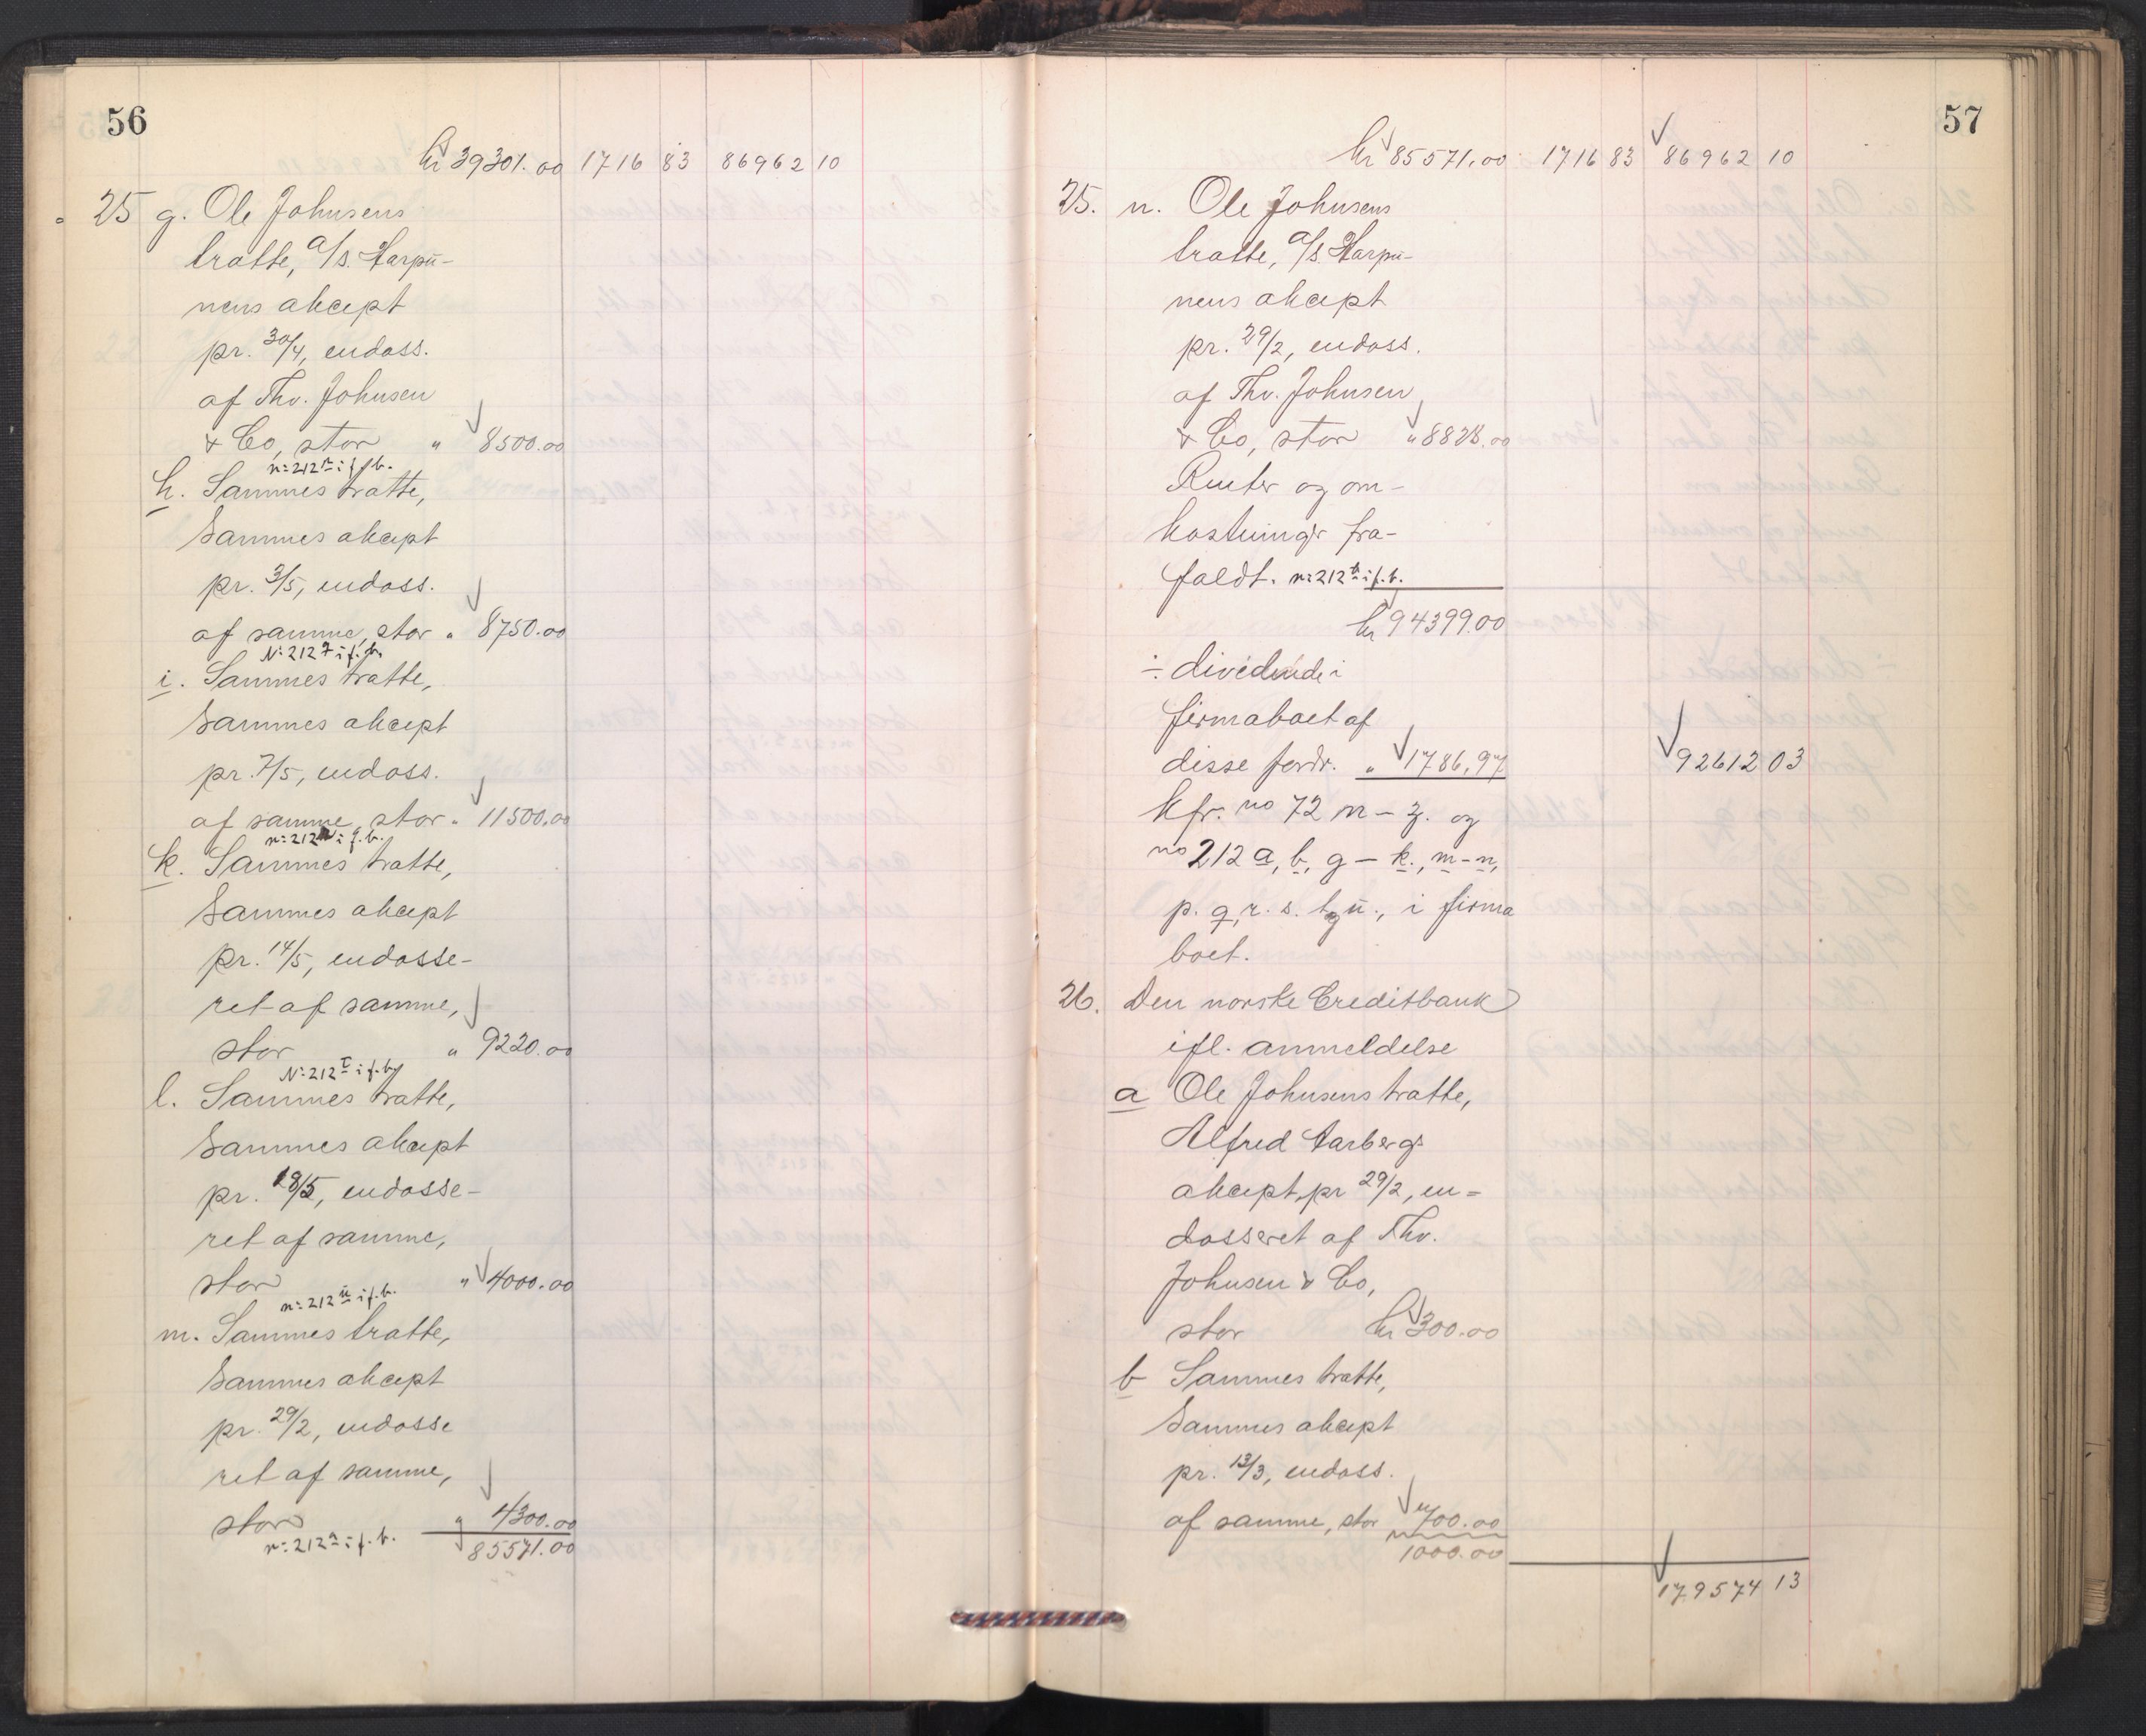 56
kr 39301.00 1716 83 86962 10
25 g. Ole Johnsens
tratte, a/s. Harpu-
nens akcept
pr. 30/4, endoss.
af Thv. Johnsen
& Co, stor " 8500.00
n: 212 i f. b.
h. Sammes tratte,
sammes akcept
pr. 3/5, endoss.
af samme, stor " 8750.00
N: 212 q i f. b.
i. Sammes tratte,
sammes akcept
pr. 7/5, endoss.
af samme, stor " 11500.00
n: 212 i f. b.
k. Sammes tratte,
sammes akcept
pr. 14/5, endosse-
ret af samme,
stor " 9220.00
N: 212 t i f. b.
l. Sammes tratte,
sammes akcept
pr. 18/5, endosse-
ret af samme,
stor " 4000.00
n: 212 u i f. b.
m. Sammes tratte,
sammes akcept
pr. 29/2, endosse
ret af samme,
stor " 4300.00
n: 212 a i f. b. 85571.00
57
kr 85571.00 1716 83 86962 10
25. n. Ole Johnsens
tratte, a/s. Harpu-
nens akcept
pr. 29/2, endoss.
af Thv. Johnsen
& Co, stor " 8828.00
Renter og om-
kostninger fra-
faldt. n: 212 b i f. b.
kr 94399.00
÷ dividende i
firmaboet af
disse fordr. " 1786,97 92612 03
kfr. no 72 m - z. og
no 212 a, b, g - k., m - n,
p. q, r. s. t og u., i firma
boet.
26. Den norske Creditbank
ifl. anmeldelse
a Ole Johnsens tratte,
Alfred Aarbergs
akcept, pr 29/2, en=
dosseret af Thv.
Johnsen & Co,
stor kr 300.00
b Sammes tratte,
sammes akcept
pr. 13/3, endoss.
af samme, stor " 700.00
1000.00
179574 13